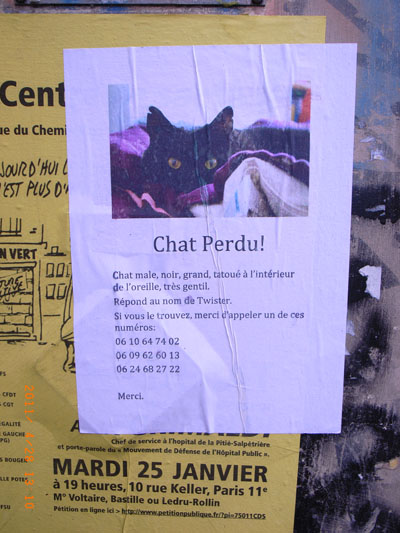 Cent
ue du Chemi
N VERT
Chat Perdu!
Chat male, noir, grand, tatoué à l'intérieur
de l'oreille, très gentil.
Répond au nom de Twister.
Si vous le trouvez, merci d'appeler un de ces
numéros:
06 10 64 74 02
06 09 62 60 13
06 24 68 27 22
Merci.
CFDT
CGT
EGALITÉ
E GAUCHE
PG)
S ROUGES
LLE POTE
FSU
Chef de service à l'hopital de la Pitié-Salpétrière
et porte-parole du « Mouvement de Défense de l'Hôpital Public ».
MARDI 25 JANVIER
à 19 heures, 10 rue Keller, Paris 11e
M° Voltaire, Bastille ou Ledru-Rollin
Pétition en ligne ici > http://www.petitionpublique.fr/?pi=75011CDS